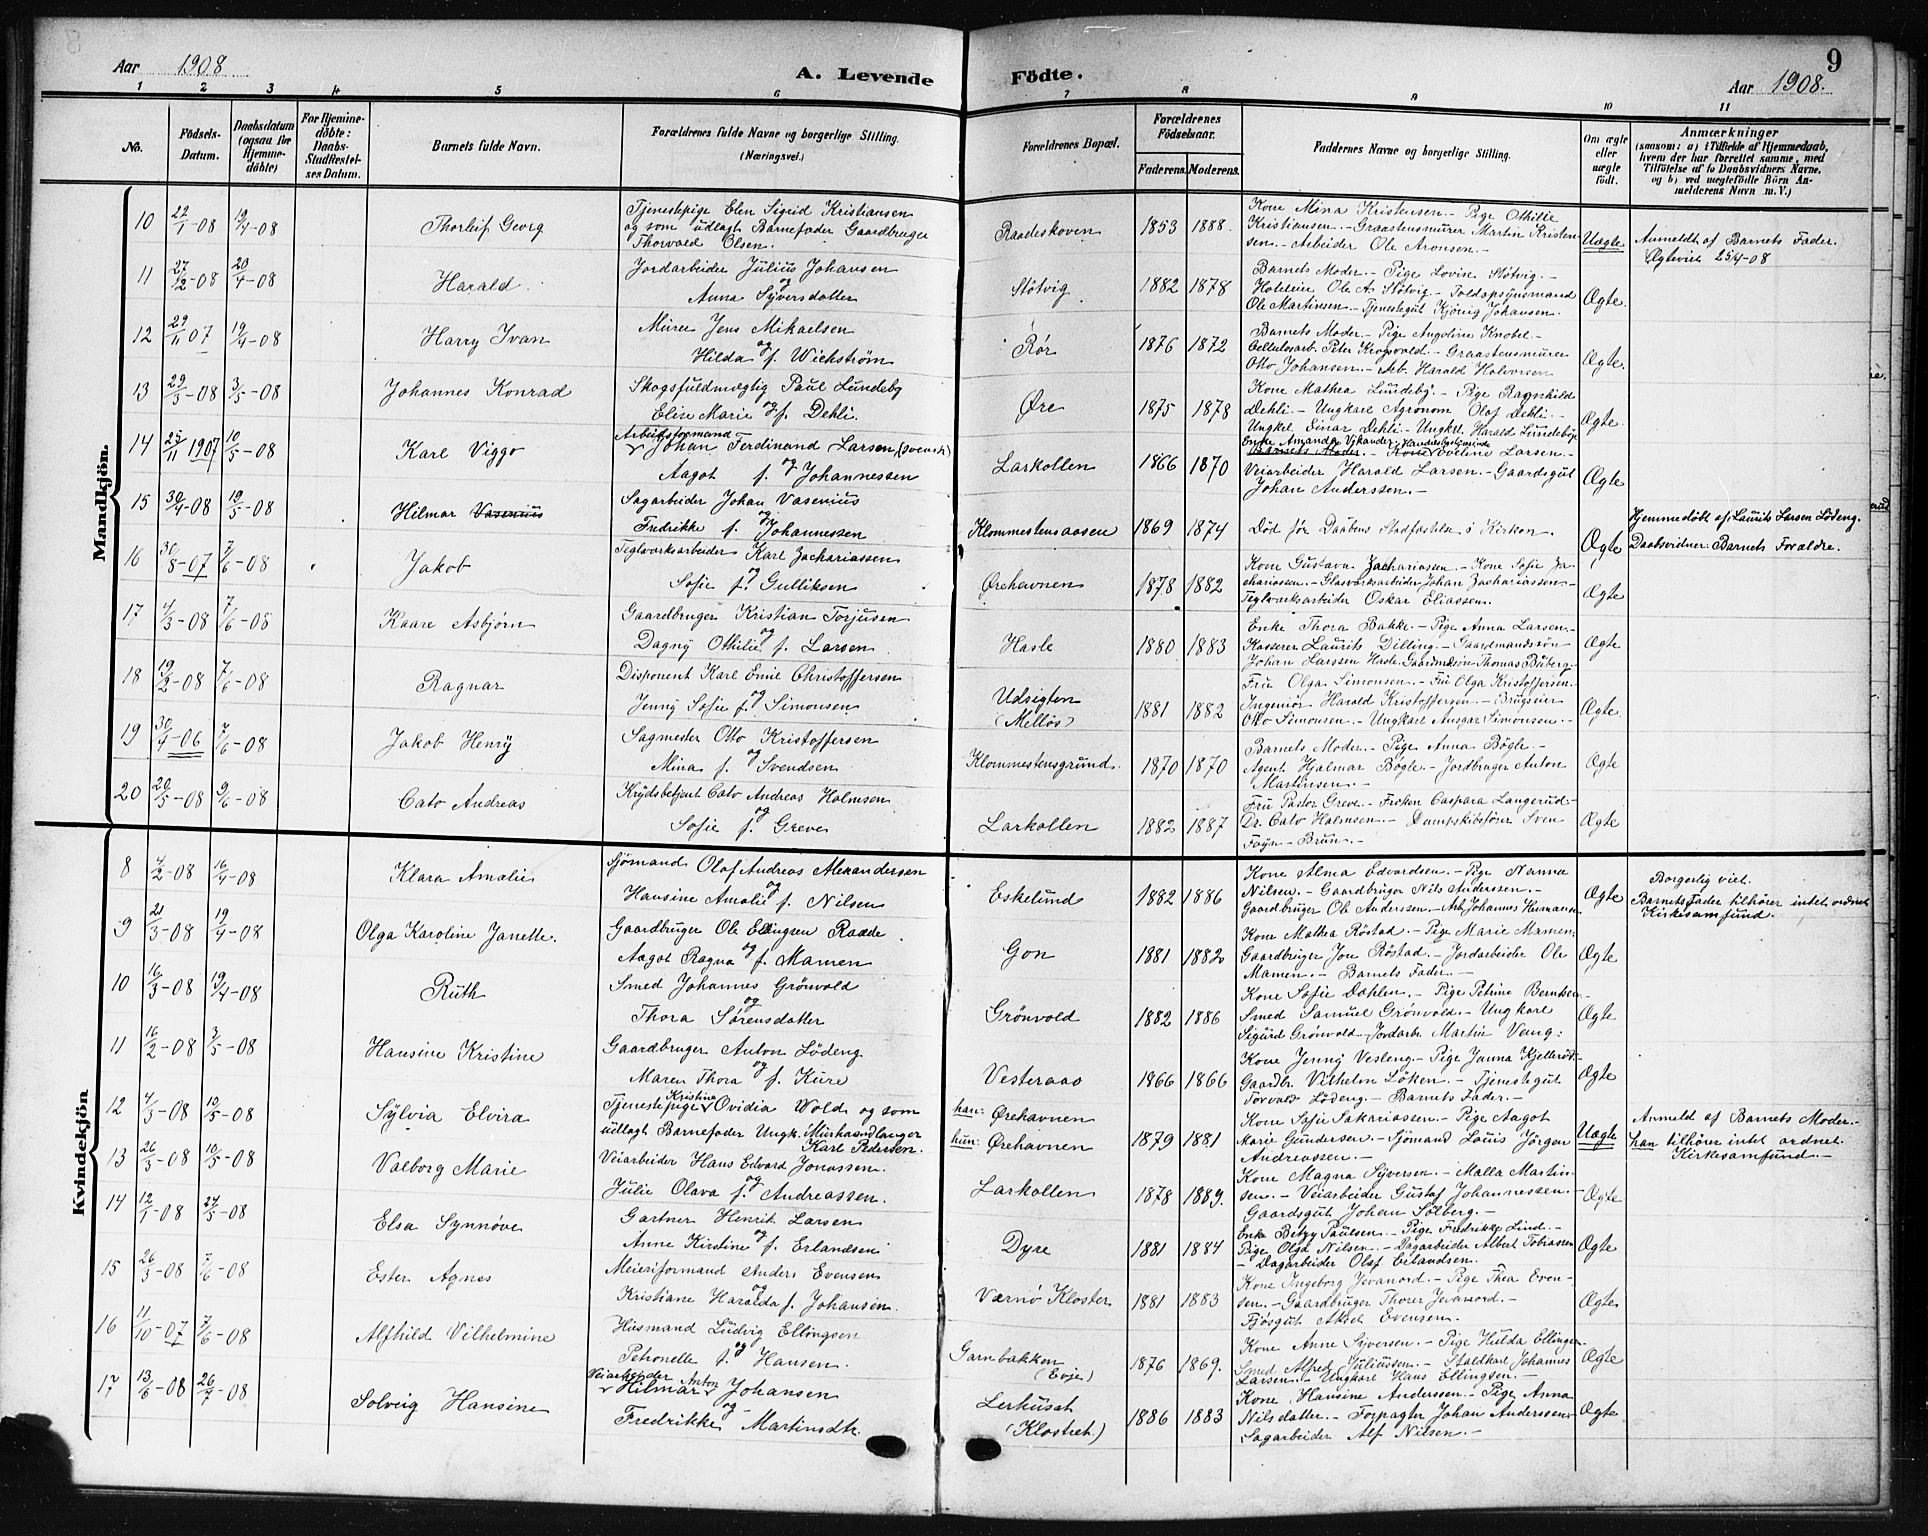 Aar 1908
A. Levende Födte.
9
Aar 1908.
1 2 3 4 5 6 7 8 9 10 11
No.
Födsels-
Datum.
Daabsdatum
(ogsaa for
Hjemme-
döbte)
For Hjemme-
döbte:
Daabs-
Stadfæstel-
ses Datum.
Barnets fulde Navn.
Forældrenes fulde Navne og borgerlige Stilling.
(Næringsvei.)
Forældrenes Bopæl.
Forældrenes
Födselsaar.
Faderens. Moderens.
Faddernes Navne og borgerlige Stilling.
Om ægte
eller
uægte
födt.
Anmærkninger
(saasom: a) i Tilfælde af Hjemmedaab,
hvem der har forrettet samme, med
Tilföielse af to Daabsvidners Navne,
og b) ved uægtefödte Börn An-
melderens Navn m. V.)
Mandkjön.
10 22/1-08 19/4-08 Thorleif Georg
Tjenestepige Elen Sigrid Kristiansen
og som udlagt Barnefader Gaardbruger
Thorvald Olsen.
Raadeskoven 1853 1888.
Kone Mina Kristensen.- Pige Othilie
Kristiansen.- Graastensmurer Martin Kristen-
sen.- Arbeider Ole Aronsen.-
Uægte
Anmeldt af Barnets Fader.
Ægteviet 25/4-08
11 27/2-08 20/4-08 Harald.
Jordarbeider Julius Johansen
og
Anna Syversdatter
Støtvig 1882 1878
Barnets Moder.- Pige Lovise Støtvig.-
Hoteleier Ole A. Støtvig.- Toldopsynsmand
Ole Martinsen.- Tjenestegut Kjønig Johansen.
Ægte.
12 29/11 07 19/4-08 Harry Ivan
Murer Jens Mikaelsen
og
Hilda f. Wickstrøm
Rör 1876 1872
Barnets Moder.- Pige Angeline Knobel.-
Cellulosearb. Peter Krogsvold.- Graastensmurer
Otto Johansen.- Arb. Harald Halvorsen
Ægte.
13 29/3-08 3/5-08 Johannes Konrad
Skogsfuldmægtig Paul Lundeby
og
Elise Marie f. Dehli.
Øre 1875 1878
Kone Mathea Lundeby.- Pige Ragnhild
Dehli.- Ungkarl Agronom Olaf Dehli.-
Ungkl. Einar Dehli.- Ungkl. Harald Lundeby
Ægte.
14 25/11 1907 10/5-08 Karl Viggo
Arbeidsformand
Johan Ferdinand Larsen (svensk)
og
Aagot f. Johannessen
Larkollen 1866 1870
Enke Amanda Vikander.
Barnets Moder.- Kone Eveline Larsen.-
Veiarbeider Harald Larsen.- Gaardsgut
Johan Anderssen.-
Ægte
15 30/4-08 10/5-08 Hilmar Vasenius
Sagarbeider Johan Vasenius
og
Fredrikke f. Johannessen
Klommestensaasen 1869 1874
Död för Daabens Stadfæstelse i Kirken.
Ægte
Hjemmedöbt af Laurits Larsen Lödeng.
Daabsvidner: Barnets Forældre.
16 30/8-07 7/6-08 Jakob
Teglværksarbeider Karl Zachariassen
og
Sofie f. Gulliksen
Ørehavnen 1878 1882
Kone Gustava Zachariassen.- Kone Sofie Za-
chariassen.- Glasværksarbeider Johan Zachariassen.-
Teglværksarbeider Oskar Eliassen.
Ægte
17 4/3-08 7/6-08 Kaare Asbjørn
Gaardbruger Kristian Torjusen
og
Dagny Othilie f. Larsen
Hasle 1880 1883
Enke Thora Bakke.- Pige Anna Larsen.-
Kasserer Laurits Dilling.- Gaardmandssøn
Johan Larssen Hasle. Gaardmdsøn Thomas Buberg.-
Ægte
18 19/2-08 7/6-08 Ragnar
Disponent Karl Emil Christoffersen
og
Jenny Sofie f. Simonsen
Udsigten
(Melløs) 1881 1882
Fru Olga Simonsen.- Fru Olga Kristoffersen.-
Ingeniør Harald Kristoffersen.- Brugseier
Otto Simonsen.- Ungkarl Ansgar Simonsen.-
Ægte.
19 30/4-06 7/6-08 Jakob Henry
Sagmester Otto Kristoffersen
og
Mina f. Svendsen
Klommestensgrund. 1870 1870
Barnets Moder.- Pige Anna Bögle.-
Agent Hjalmar Bögle.- Jordbruger Anton
Martinsen.-
Ægte
20 20/5-08 9/6-08 Cato Andreas
Krydsbetjent Cato Andreas Holmsen
og
Sofie f. Greve
Larkollen 1882 1887
Fru Pastor Greve.- Frøken Caspara Langerud.-
Dr. Cato Holmsen.- Dampskibsfører Sven
Foyn-Brun.-
Ægte
Kvindekjön
8 4/2-08 16/4-08 Klara Amalie
Sjømand Olaf Andreas Alexandersen
og
Hansine Amalie f. Nilsen
Eskelund 1882 1886
Kone Alma Edvardsen.- Pige Nanna
Nilsen.- Gaardbruger Nils Anderssen.-
Gaardbruger Ole Anderssen.- Arb. Johannes Hermansen
Ægte
Borgerlig viet.
Barnets Fader tilhører intet ordnet
Kirkesamfund.
9 21/3-08 19/4-08 Olga Karoline Janette.
Gaardbruger Ole Ellingsen Raade
og
Aagot Ragna f. Mamen
Gon 1881 1882
Kone Mathea Röstad.- Pige Marie Mamen.
Gaardbruger Jon Röstad.- Jordarbeider Ole
Mamen.- Barnets Fader.-
Ægte
10 16/3-08 19/4-08 Ruth
Smed Johannes Grönvold
og
Thora Sørensdatter
Grönvold 1882 1886
Kone Sofie Dahlen.- Pige Petrine Berntsen
Smed Samuel Grønvold.- Ungkarl
Sigurd Grønvold.- Jordarb. Martin Vang.
Ægte
11 16/2-08 3/5-08 Hansine Kristine
Gaardbruger Anton Lödeng
og
Maren Thora f. Kure
Vesteraas 1866 1866
Kone Jenny Vesleng.- Pige Janna Kjelleröd.-
Gaardbr. Vilhelm Löken.- Tjenestegut
Torvald Lödeng.- Barnets Fader.-
Ægte
12 4/3-08 10/5-08 Sylvia Elvira
Kristine
Tjenestepige Ovidia Wold og som
udlagt Barnefader Ungk. Murhaandlanger
Karl Pedersen.
han: Ørehavnen
hun: Ørehavnen 1879 1881
Kone Sofie Sakriassen.- Pige Aagot
Marie Gundersen.- Sjömand Louis Jörgen
Andreassen.-
Uægte
Anmeld af Barnets Moder.-
han tilhører intet ordnet
Kirkesamfund.-
13 26/3-08 10/5-08 Valborg Marie
Veiarbeider Hans Edvard Jonassen.
og
Julie Olava f. Andreassen.
Larkollen 1878 1889.
Kone Magna Syversen.- Malla Martin-
sen.- Veiarbeider Gustaf Johannessen.-
Gaardsgut Johan Solberg.-
Ægte
14 12/1-08 24/5-08 Elsa Synnøve
Gartner Henrik Larsen
og
Anne Kirstine f. Erlandsen
Dyre 1881 1884
Enke Betzy Paulsen.- Pige Fredrikke Lind.-
Pige Olga Nilsen.- Dagarbeider Albert Tobiassen
- Dagarbeider Olaf Erlandsen.
Ægte
15 26/3-08 7/6-08 Ester Agnes
Meieriformand Anders Evensen
og
Kristiane Haralda f. Johansen.
Værnø Kloster 1881 1883
Kone Ingeborg Jevanord.- Pige Thea Even-
sen.- Gaardbruger Thorer Jevanord.-
Fjösgut Aksel Evensen.
Ægte
16 11/10-07 7/6-08 Alfhild Vilhelmine
Husmand Ludvig Ellingsen
og
Petronelle f. Hansen.
Garnbakken
(Evje) 1876 1869.
Kone Anne Syversen.- Pige Hulda Ellingsen
Smed Alfred Juliussen.- Staldkarl Johannes
Larsen.- Ungkarl Hans Ellingsen.-
Ægte
17 13/6-08 26/7-08 Solveig Hansine
Veiarbeider Anton
Hilmar Johansen
og
Fredrikke Martinsdtr.
Lerhuset
(Klostret.) 1886 1883
Kone Hansine Anderssen.- Pige Anna
Nilsdatter.- Forpagter Johan Anderssen.-
Sagarbeider Alf Nilsen.-
Ægte